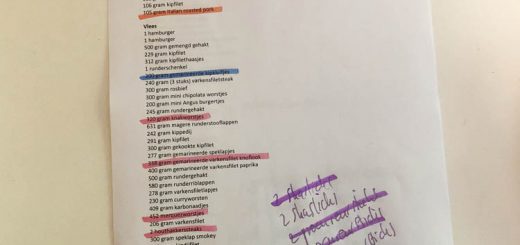 106 gram kipfilet
105 gram italian roasted pork
Vlees
1 hamburger
1 hamburger
500 gram gemengd gehakt
229 gram kipfilet
312 gram kipfilethaasjes
1 runderschenkel
gram gemarineerde
240 gram (3 stuks) varkensfiletsteak
300 gram rosbief
300 gram mini chipolata worstjes
200 gram mini Angus burgertjes
245 gram rundergehakt
320 gram knakworstjes
631 gram magere runderstooflappen
242 gram kippedij
291 gram kipfilet
300 gram gekookte kipfilet
277 gram gemarineerde speklapjes
348 gram gemarineerde varkensfilet knoflook
400 gram gemarineerde varkensfilet paprika
500 gram rundergehakt
580 gram runderriblappen
278 gram varkensfiletlapjes
230 gram curryworsten
409 gram karbonaadjes
452 gram
206 gram varkensfilet
2 houthakkerssteaks
300 gram speklap smokey
2
2
2